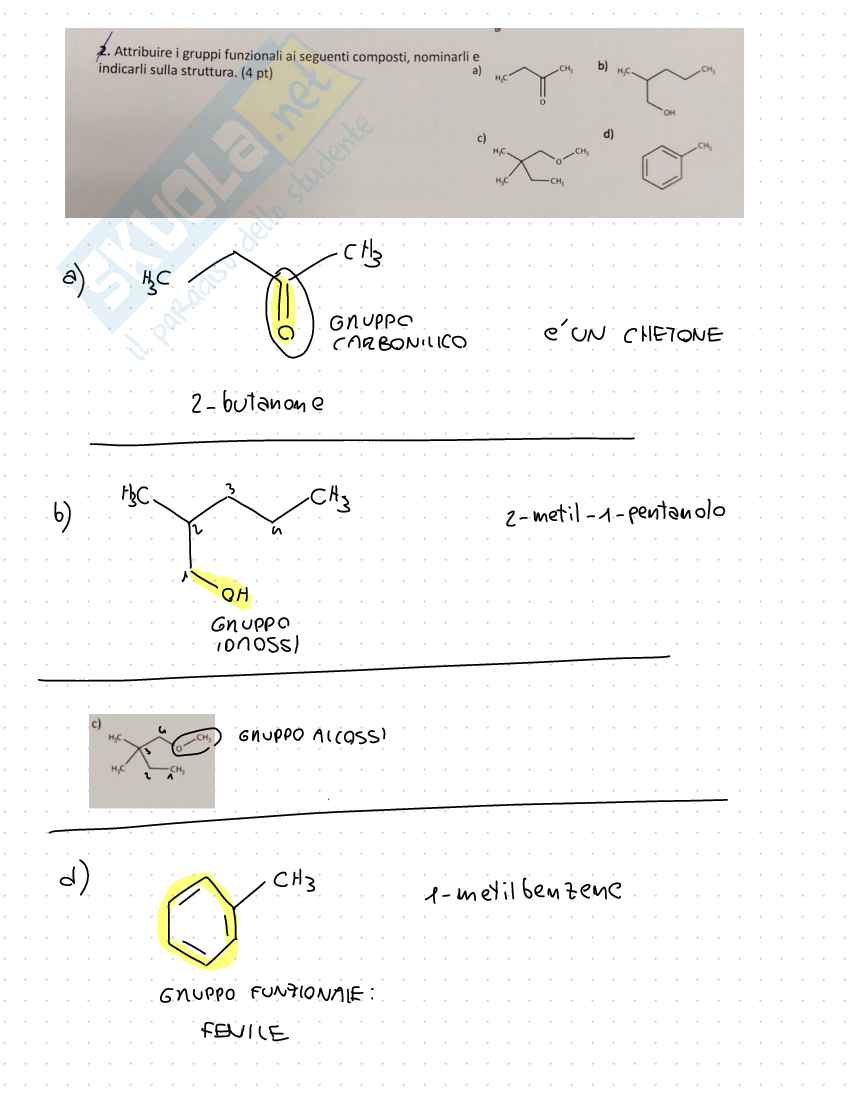 2. Attribuire i gruppi funzionali ai seguenti composti, nominarli e
indicarli sulla struttura. (4 pt)
a)
H₃C
CH₃
O
b)
H₃C
CH₃
OH
c)
H₃C
H₃C
O
CH₃
CH₃
d)
CH₃
SKUOLA.net
il paradiso dello studente
a)
H₃C
CH₃
O
GRUPPO
CARBONILICO
e' UN CHETONE
2-butanone
b)
H₃C
3
CH₃
2
4
1
OH
2-metil-1-pentanolo
GRUPPO
IDROSSI
c)
H₃C
4
O
CH₃
3
H₃C
2
1
CH₃
GRUPPO ALCOSSI
d)
CH3
1-metilbenzene
GRUPPO FUNZIONALE:
FENILE